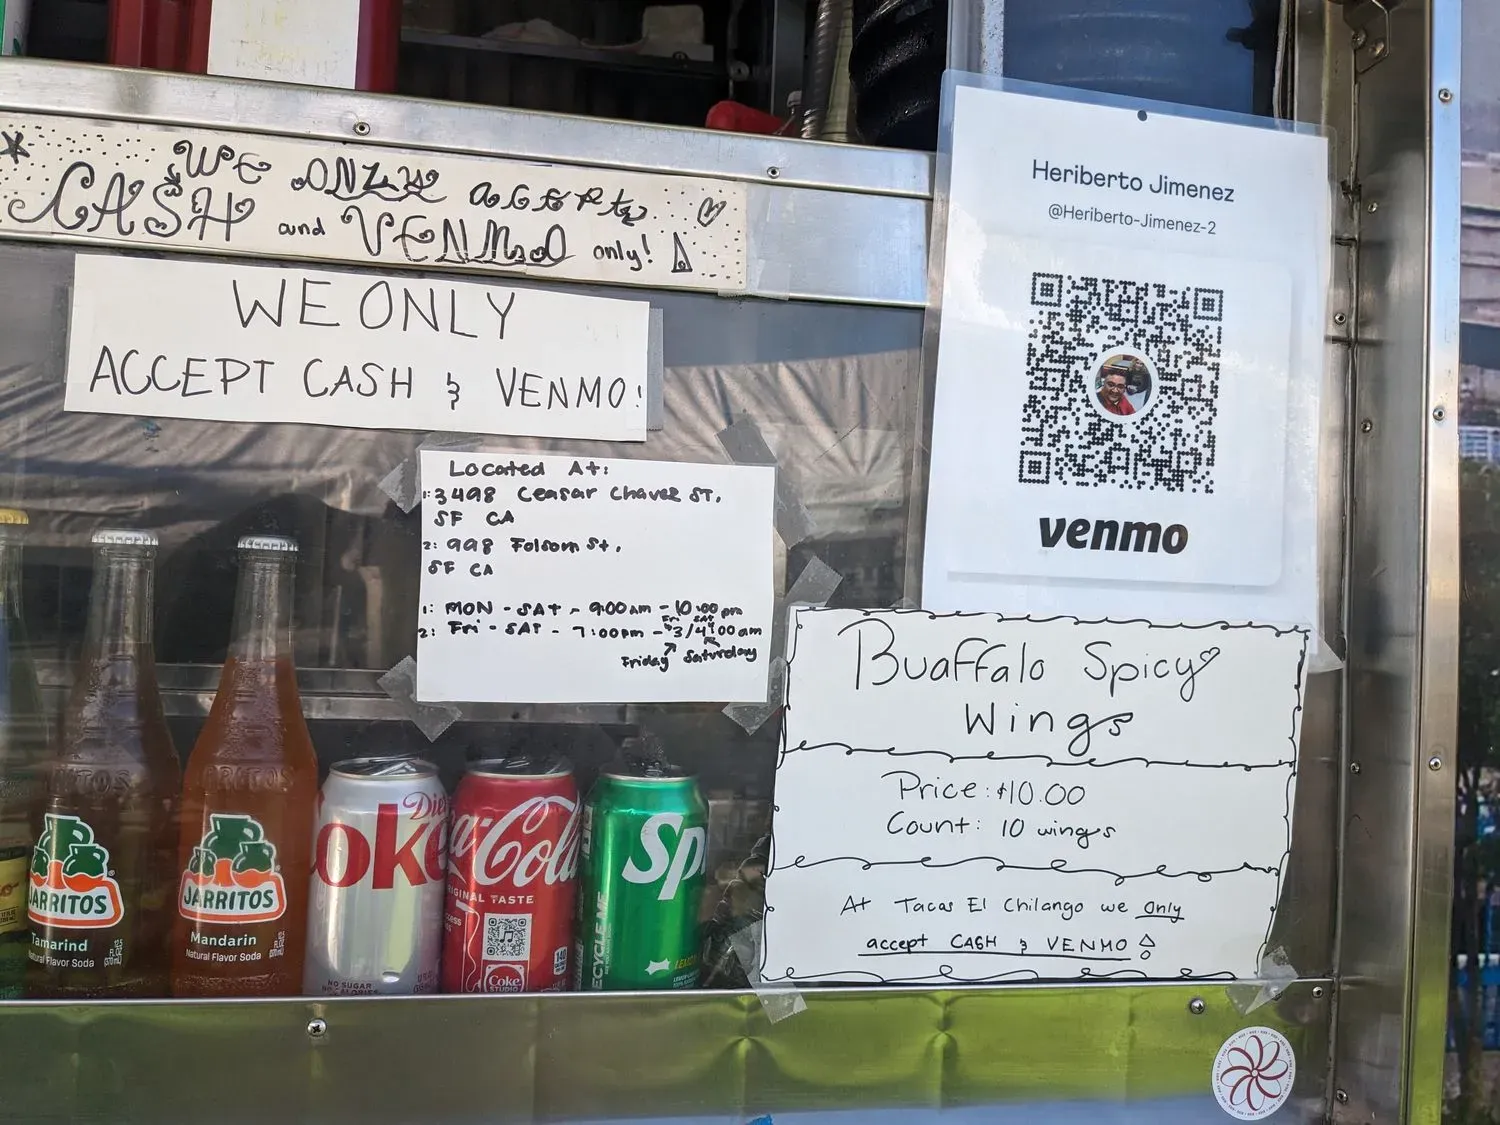 WE ONLY accept
CASH and VENMO only!
WE ONLY
ACCEPT CASH & VENMO!
Located At:
1: 3498 Ceasar Chavez ST.
SF CA
2: 998 Folsom St.
SF CA
1: MON - SAT - 9:00am - 10:00pm
Fri SAT
2: Fri - SAT - 7:00pm - 3/4:00am
Friday Saturday
Heriberto Jimenez
@Heriberto-Jimenez-2
venmo
Buaffalo Spicy
Wings
Price: $10.00
Count: 10 wings
At Tacos El Chilango we only
accept CASH & VENMO
JARRITOS
Tamarind
Natural Flavor Soda
JARRITOS
Mandarin
Natural Flavor Soda
Diet
oke
NO SUGAR
a-Cola
ORIGINAL TASTE
Coke
STUDIO
Sp
RECYCLE ME